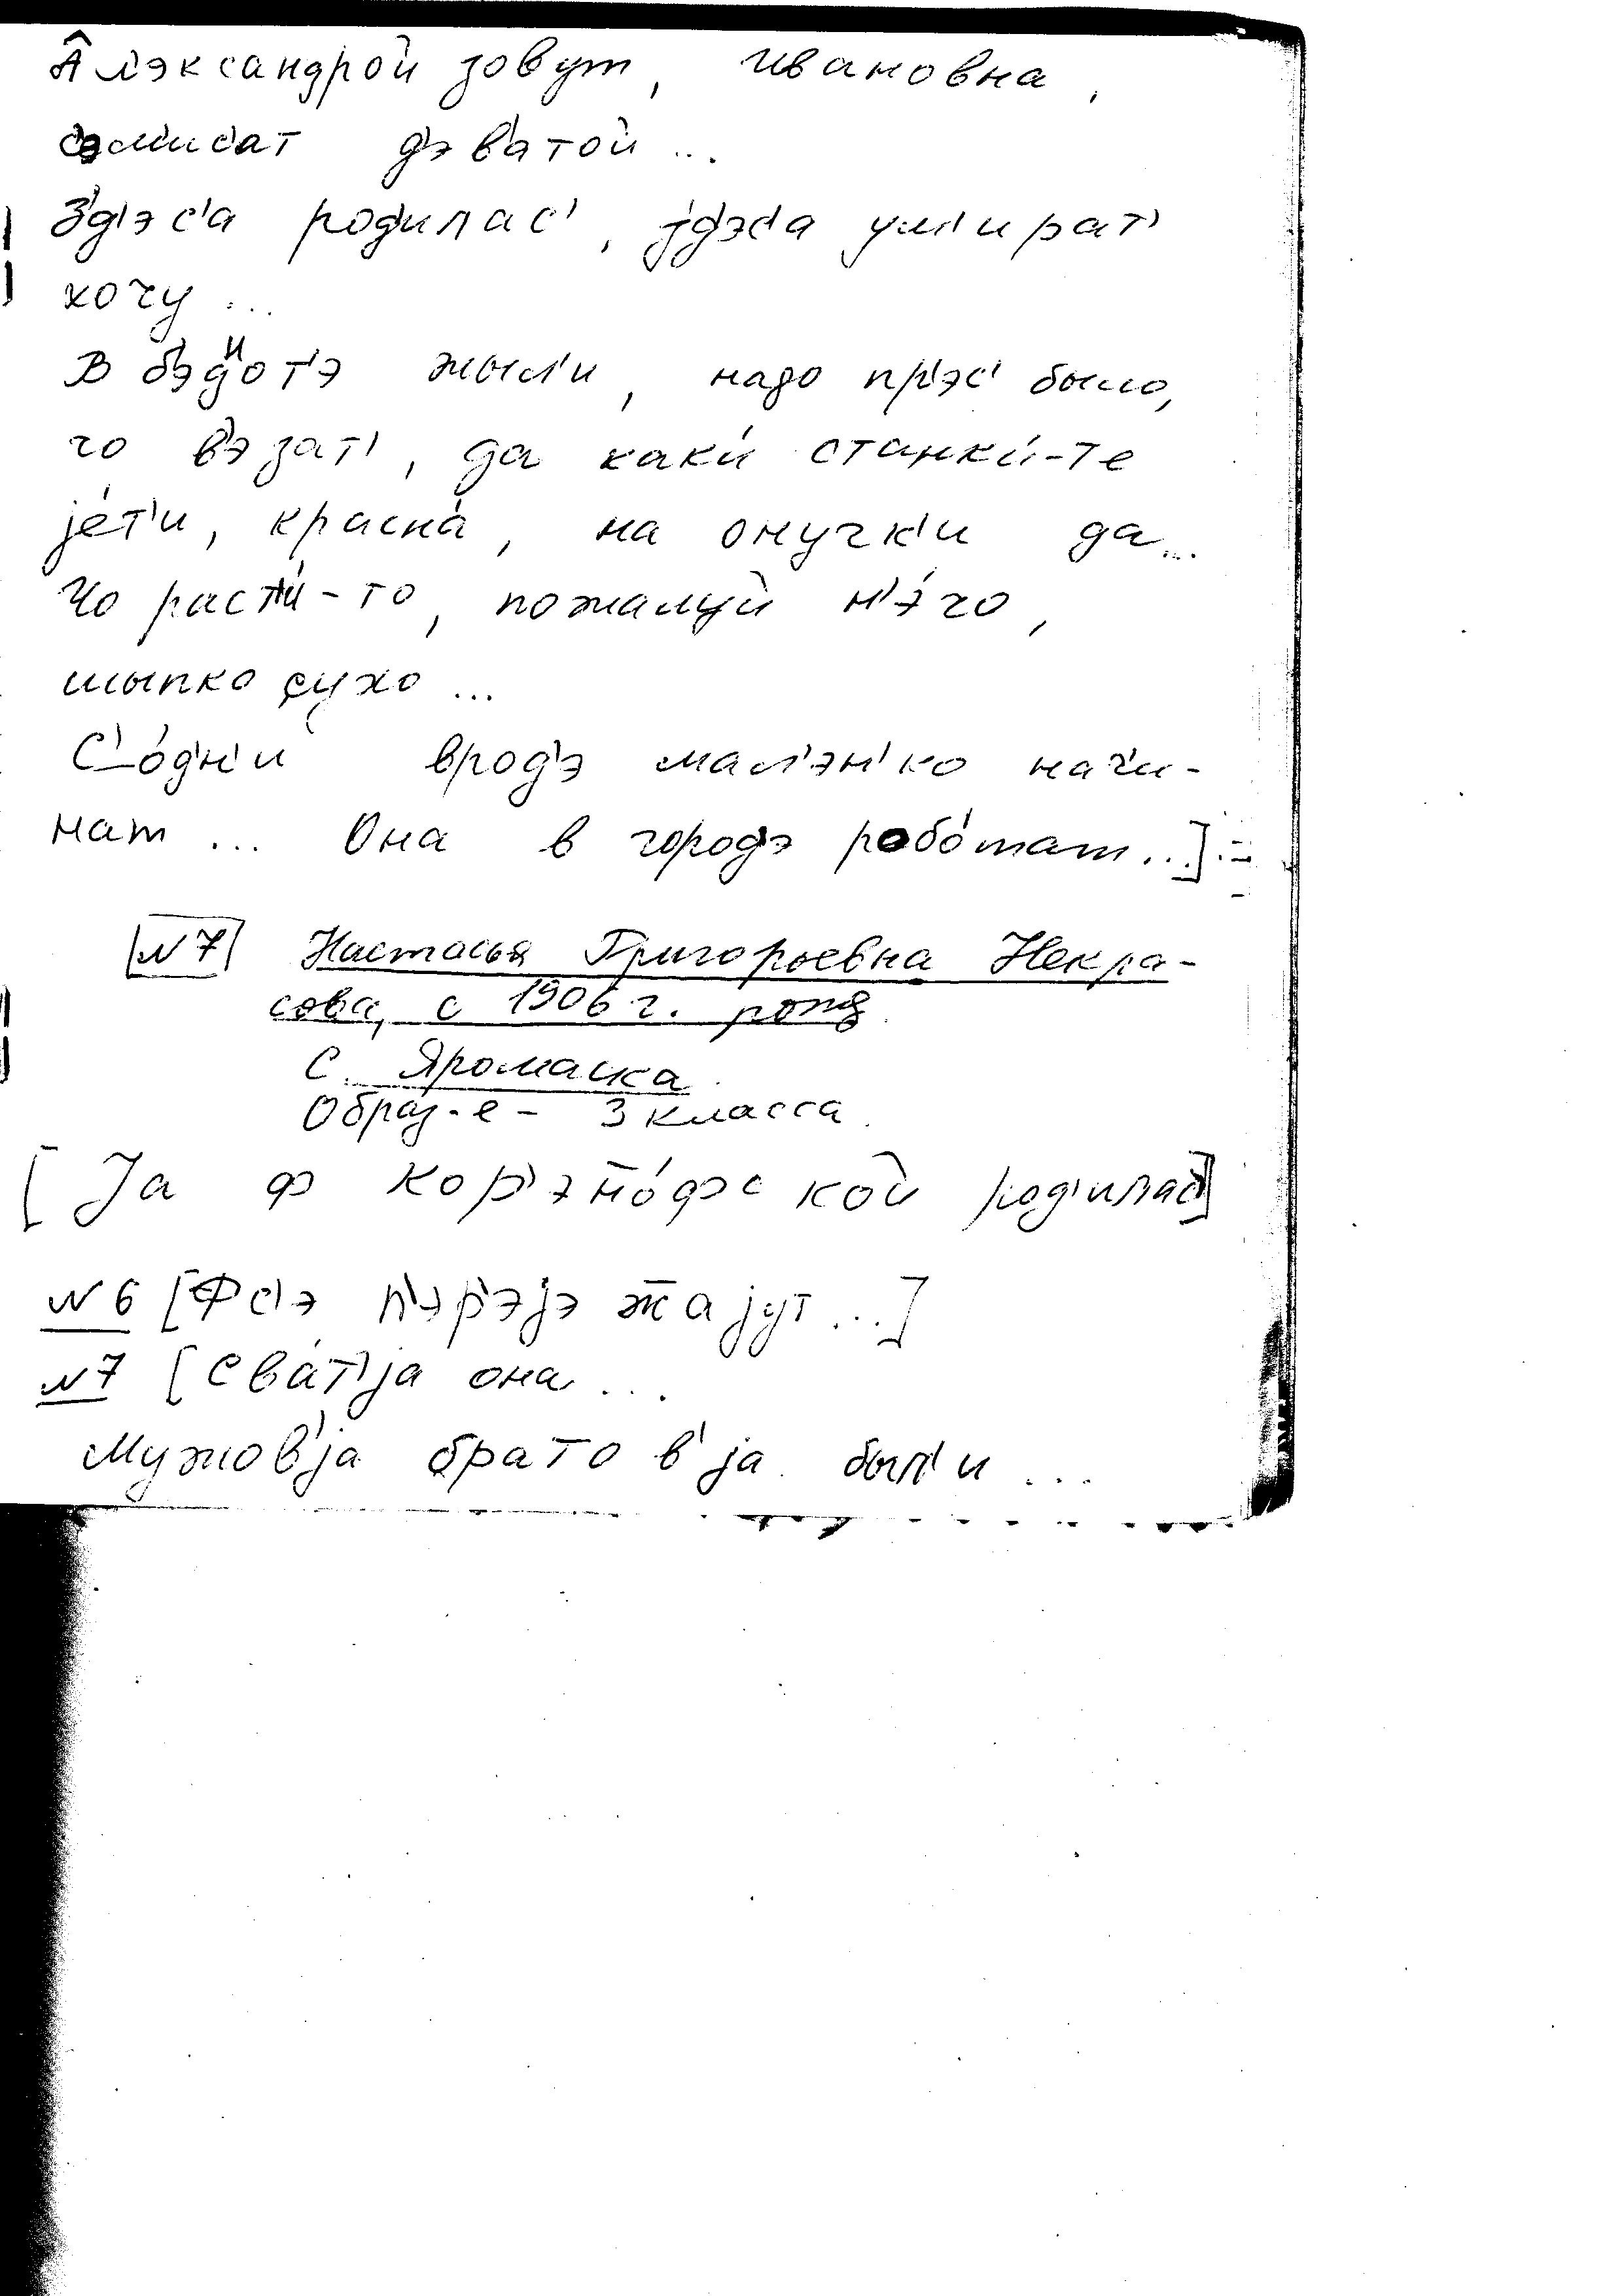 Ал'эксандрой зовут, Ивановна,
с'эм'ис'ат д'эв'атой ...
З'д'эс'а род'илас', з'д'эс'а ум'ират'
хочу ...
В б'эд'┬от'э жыл'и, надо пр'эс' было,
чо в'эзат', да как'и станк'и-те
јéт'и, краснá, на онучк'и да...
Чо раст'и́-то, пожалуй н'э́чо,
шыпко сухо ...
С'óдн'и врод'э мал'эн'ко начи-
нат ... Она в город'э робóтат...].
№7 Настасья Григорьевна Некра-
сова, с 1906 г. рожд.
С. Яромаска
Образ-е - 3 класса.
[Ја ф кор'энóфской род'илас']
№6 [Фс'э п'эр'эјэж̄ајут...]
№7 [Свáт'ја она ...
Мужов'ја братов'ја был'и ...